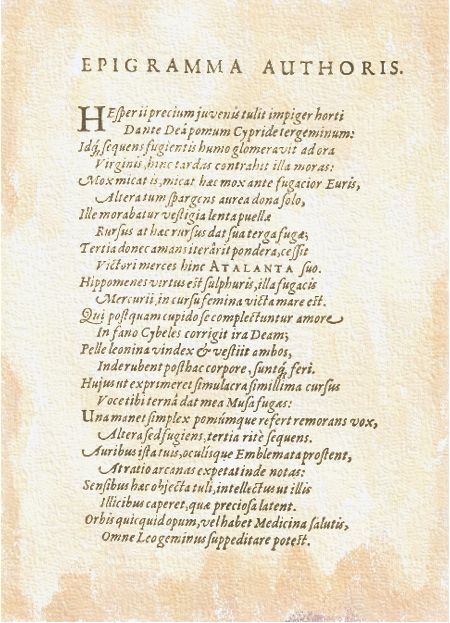 EPIGRAMMA AUTHORIS.
HEsperii precium juvenis tulit impiger horti
Dante Deâ pomum Cypride tergeminum:
Idq́; sequens fugientis humo glomeravit ad ora
Virginis, hinc tardas contrahit illa moras:
Mox micat is, micat hæc mox ante fugacior Euris,
Alteratum spargens aurea dona solo,
Ille morabatur vestigia lenta puellæ
Rursus at hæc rursus dat sua terga fugæ;
Tertia donec amans iterârit pondera, cessit
Victori merces hinc ATALANTA suo.
Hippomenes virtus est sulphuris, illa fugacis
Mercurii, in cursu femina victa mare est.
Qui postquam cupido se complectuntur amore
In fano Cybeles corrigit ira Deam;
Pelle leonina vindex & vestiit ambos,
Inde rubent posthac corpore, suntq́; feri.
Hujus ut exprimeret simulacra simillima cursus
Voce tibi ternâ dat mea Musa fugas:
Una manet simplex pomúmque refert remorans vox,
Altera sed fugiens, tertia ritè sequens.
Auribus ista tuis, oculísque Emblemata prostent,
At ratio arcanas expetat inde notas:
Sensibus hæc objecta tuli, intellectus ut illis
Illicibus caperet, quæ preciosa latent.
Orbis quicquid opum, vel habet Medicina salutis,
Omne Leo geminus suppeditare potest.